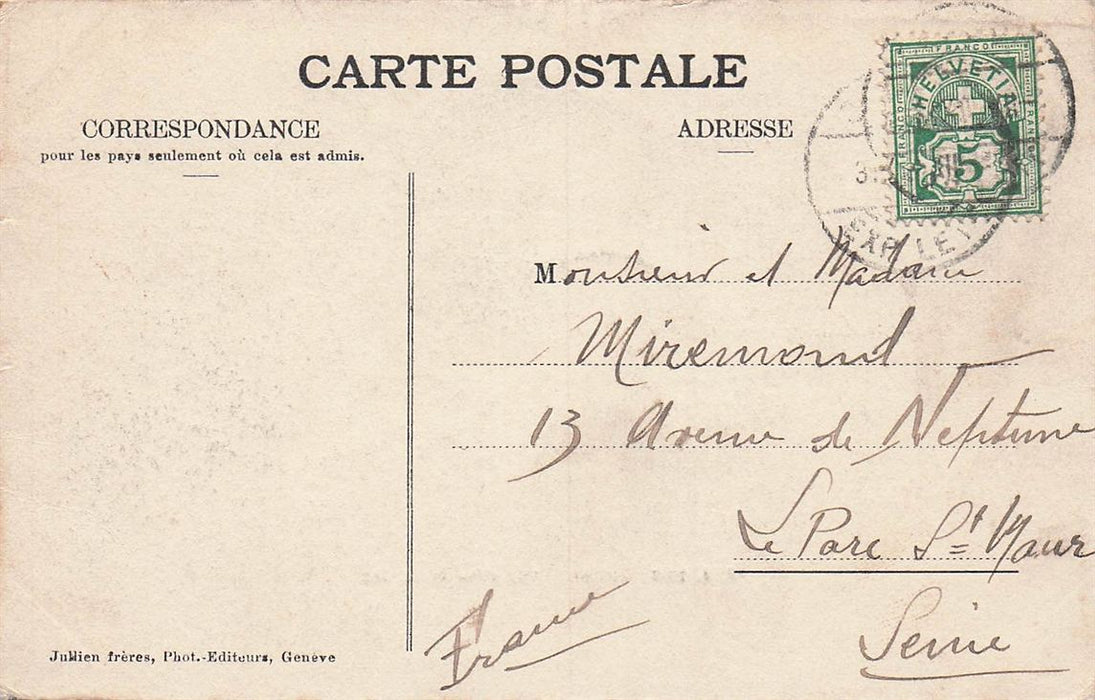 CARTE POSTALE
CORRESPONDANCE
pour les pays seulement où cela est admis.
ADRESSE
FRANCO
HELVETIA
FRANCO
FRANCO
5
Monsieur et Madame
Miremond
13 Avenue de Neptune
Le Parc St Maur
Seine
France
Jullien frères, Phot.-Editeurs, Genève